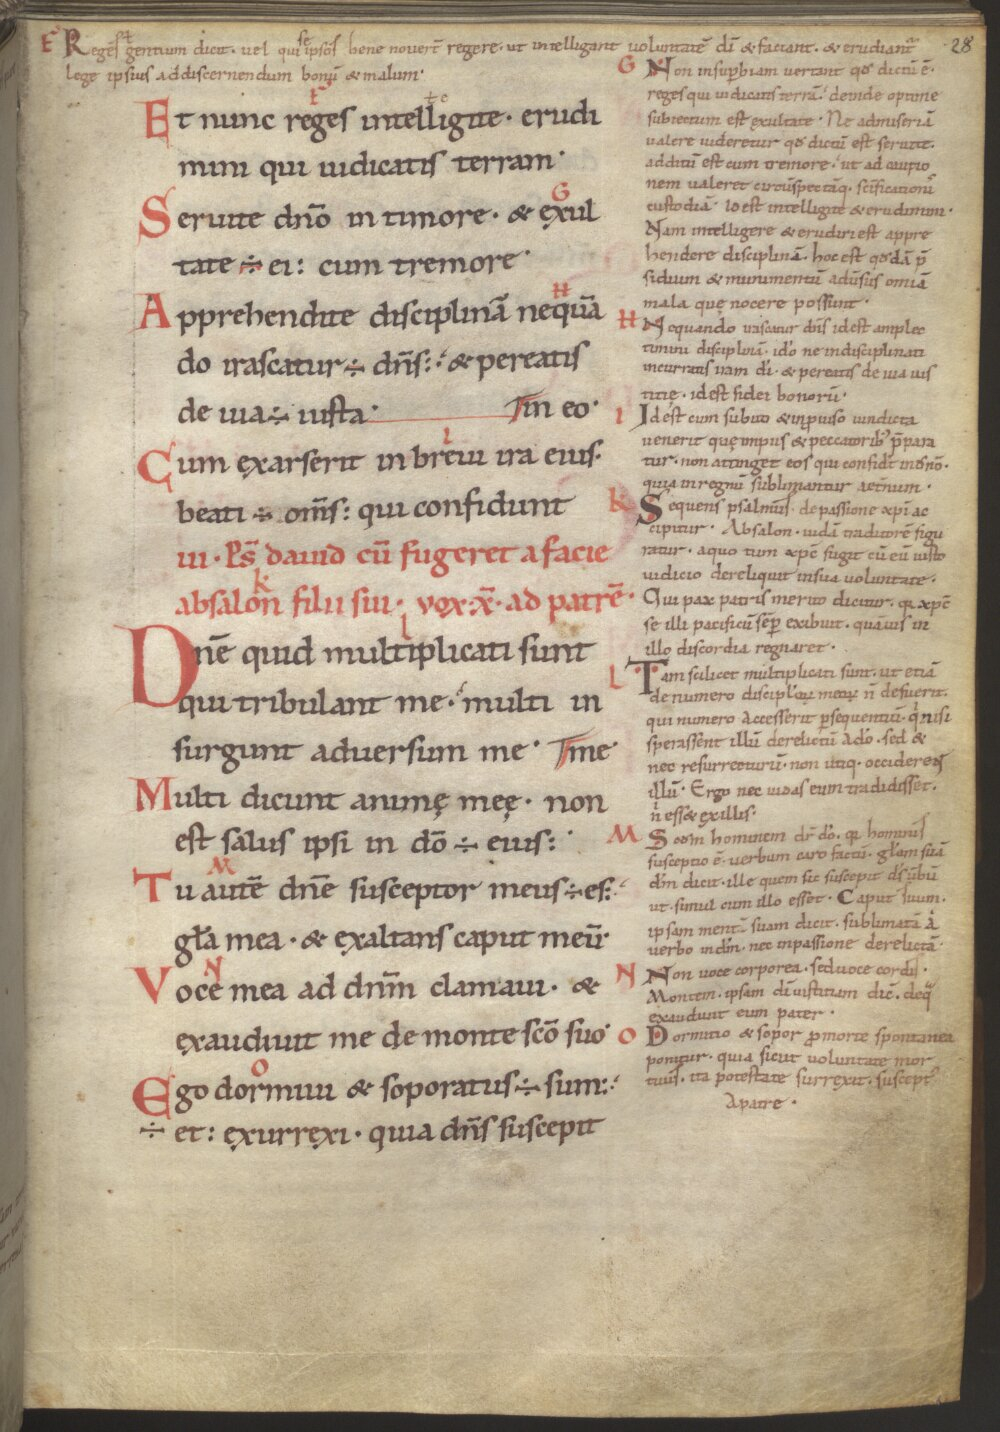 28
F Reges gentium dicit. vel qui se ipsos bene noverт̄ regere. ut intelligant voluntatē dī & faciant. & erudiant᷑
lege ipsius ad discernendum bonū & malum.
Et nunc reges intelligite. erudi
mini qui iudicatis terram.
Seruite dn̄o in timore. & exul
tate ÷ ei: cum tremore.
Apprehendite disciplinā nequā
do irascatur ÷ dn̄s: & pereatis
de uia ÷ iusta. in eo.
Cum exarserit in breui ira eius.
beati ÷ om̄s: qui confidunt
iii. Ps̄ dauid cū fugeret a facie
absalon filii sui. vox: x̄. ad patrē.
Dn̄e quid multiplicati sunt
qui tribulant me. multi in
surgunt adversum me. me.
Multi dicunt animę meę. non
est salus ipsi in dō ÷ eius:.
Tu autē dn̄e susceptor meus ÷ es:
gl̄a mea. & exaltans caput meū.
Voce mea ad dn̄m clamaui. &
exaudiuit me de monte scō suo.
Ego dormiui & soporatus ÷ sum:.
÷ et: exurrexi. quia dn̄s suscepit
G Non in supbiam vertant qđ dictū ē.
reges qui iudicatis terrā. deinde optime
subiectum est exultate. Ne ad miseriā
valere videretur qđ dictū est seruite.
additū est cum tremore. ut ad cautio
nem valeret circūspectāq. scificationis
custodiā. Id est intelligite & erudimini.
Nam intelligere & erudiri est appre
hendere disciplinā. hoc est qđdā p̄
sidium & munimentū adūsus omia
mala quę nocere possunt.
H Ne quando irascatur dn̄s id est amplec
timini disciplinā. ido ne indisciplinati
incurratis iram dī. & pereatis de uia ius
titię. id est fidei bonorū.
I Id est cum subito & inproviso uindicta
uenerit quę impiis & peccatorib; p̄para
tur. non attinget eos qui confidt in dn̄o.
quia in regnū sublimantur aetnum.
K Sequens psalmus de passione xp̄i ac
cipitur. Absalon. iudā traditorē figu
ratur. a quo tum xp̄c fugit cū eū iusto
iudicio dereliquit in sua voluntate.
Qui pax patris merito dicitur. qa xp̄c
se illi pacificū sēp exibuit. quāuis in
illo discordia regnaret.
L Tam scilicet multiplicati sunt. ut etiā
de numero discipl'ou meou n̄ defuerit.
qui numero accesserit psequentiū. qi nisi
sperassent illū derelictū a dō. sed &
nec resurrecturū. non utiq. occiderent
illū. Ergo nec iudas eum tradidisset.
n̄ esset ex illis.
M Scdm hominem dr̄ dō. qa hominis
susceptio ē. verbum caro factū. gl'am suā
dm̄ dicit. ille quem sic suscepit dī ūbū
ut. simul cum illo esset. Caput suum.
ipsam mentē suam dicit. sublimatā a
uerbo in dm̄. nec in passione derelictā.
N Non voce corporea. sed voce cordis.
Montem. ipsam dī iustitiam dic̄. de q
exaudiunt eum pater.
O Dormitio & sopor p morte spontanea
ponitur. quia sicut voluntate mor
tuus. ita potestate surrexit. suscept'
a patre.